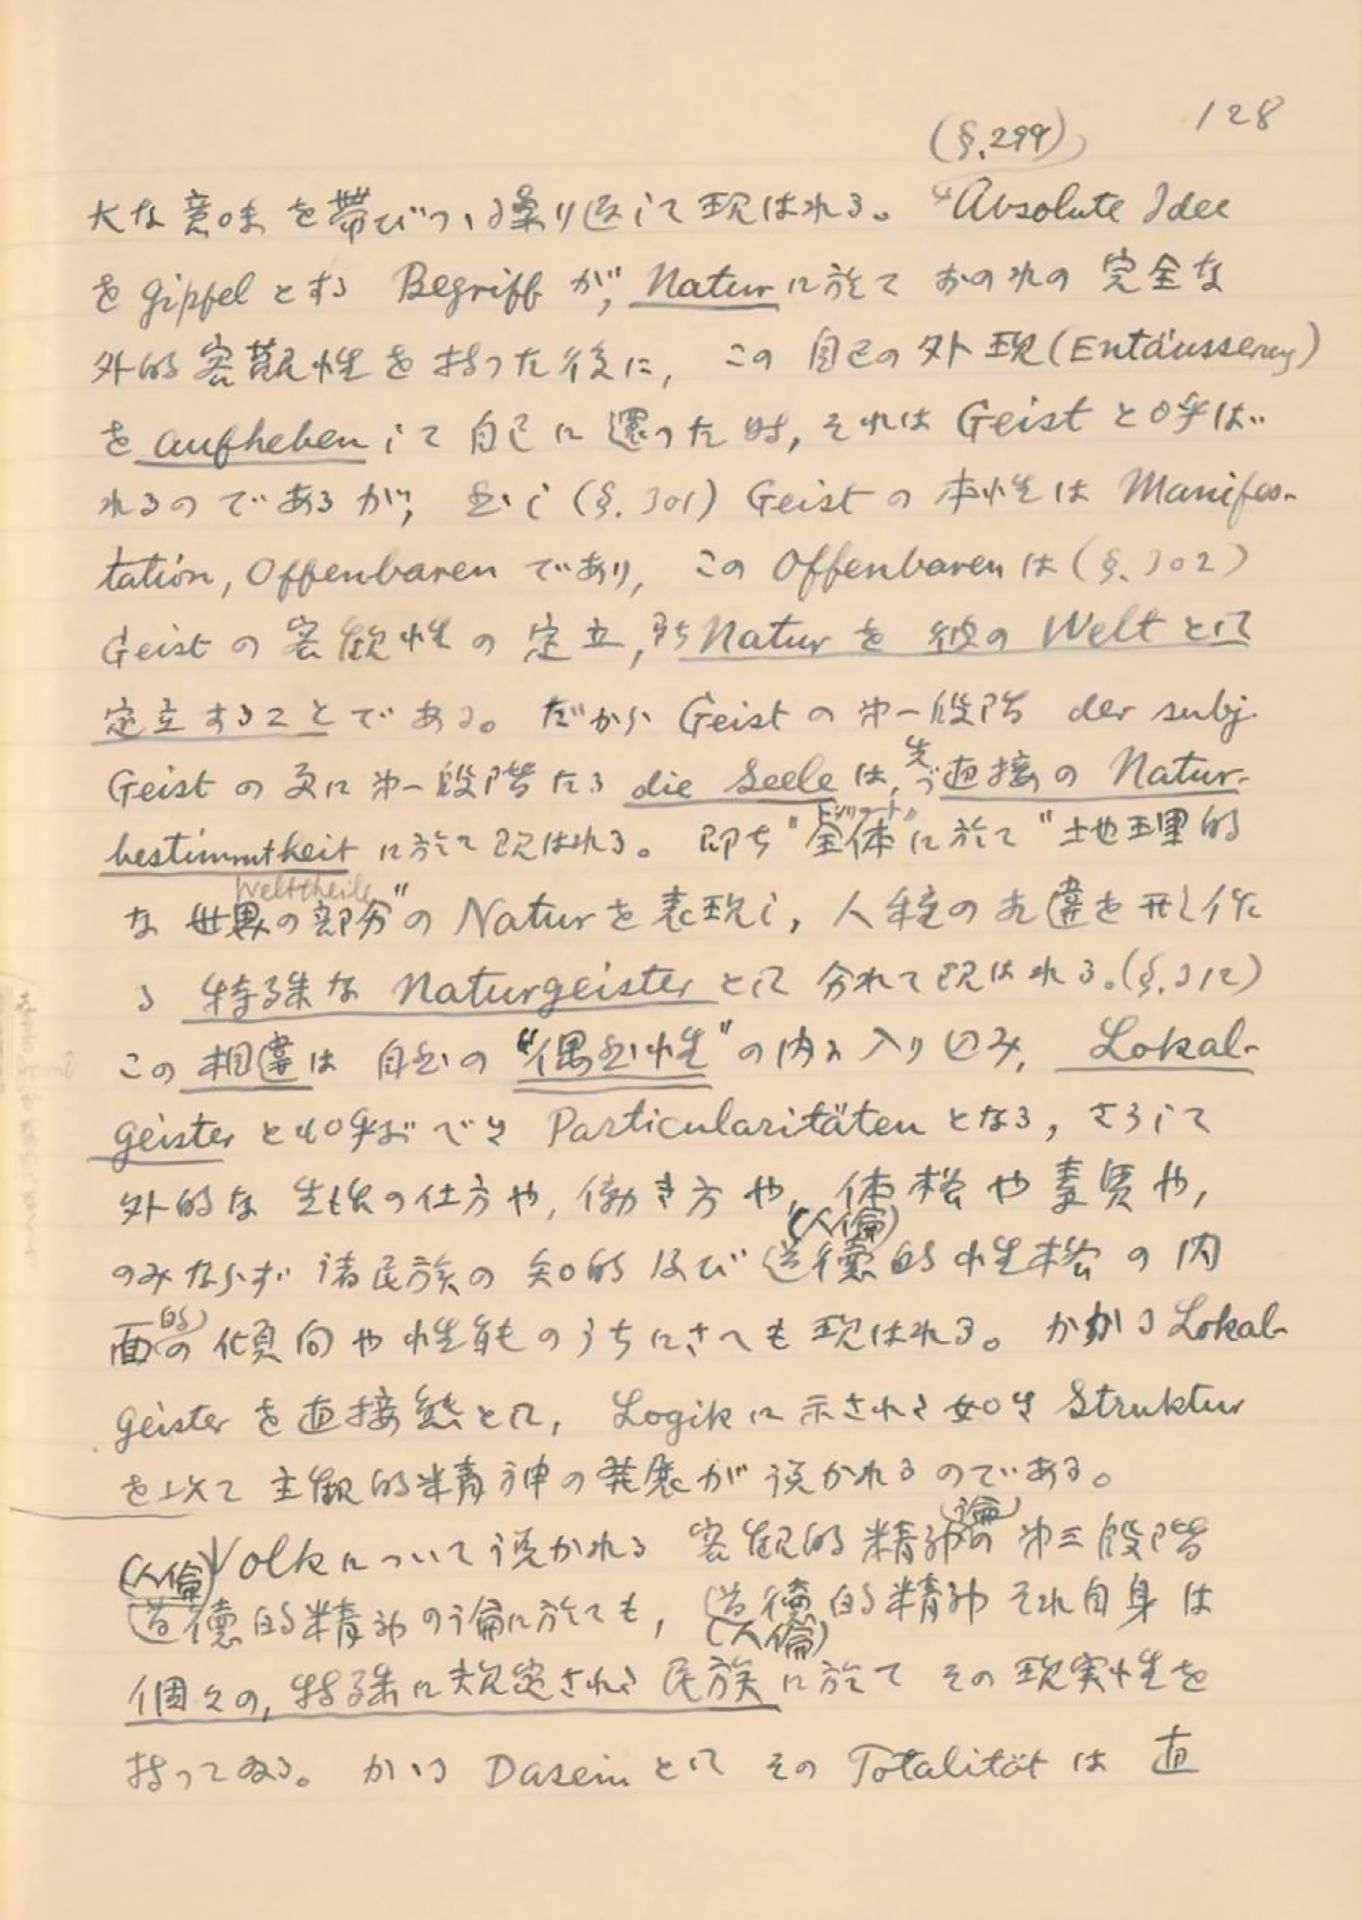 128
(§.299)
大な意味を帯びつゝ繰り返して現はれる。 Absolute Idee
を Gipfel とする Begriff が, Natur に於て おのれの 完全な
外的客観性を持つた後に, この 自己の外現(Entäusserung)
を aufheben して 自己に還つた時, それは Geist と呼ば
れるのであるが, 然し (§.301) Geist の 本性は Manifes-
tation, Offenbaren であり, この Offenbaren は (§.302)
Geist の 客観性の 定立, 即ち Natur を 彼の Welt として
定立することである。 だから Geist の 第一段階 der subj.
Geist の 更に第一段階たる die Seele は, 先づ直接の Natur-
bestimmtheit に於て現はれる。 即ち "全体"に於て "地理的
Welttheile
な世界の部分" の Natur を表現し, 人種の相違を形作
る 特殊な Naturgeister として 分れて現はれる。(§.312)
この 相違は 自然の "偶然性" の内に入り込み, Lokal-
geister とも呼ぶべき Particularitäten となる, さうして
外的な 生活の仕方や, 働き方や, 体格や素質や,
(人倫)
のみならず 諸民族の 知的及び 道徳的性格の内
面の(的)傾向や性能のうちにさへも現はれる。 かかる Lokal-
geister を直接態として, Logik に示された如き Struktur
を以て 主観的精神の発展が説かれるのである。
(論)
Volk について説かれる 客観的精神の 第三段階
(人倫)
道徳的精神の論に於ても, 道徳的精神それ自身は
(人倫)
個々の, 特殊に規定された 民族に於て その現実性を
持つてゐる。 かゝる Dasein として その Totalität は 直